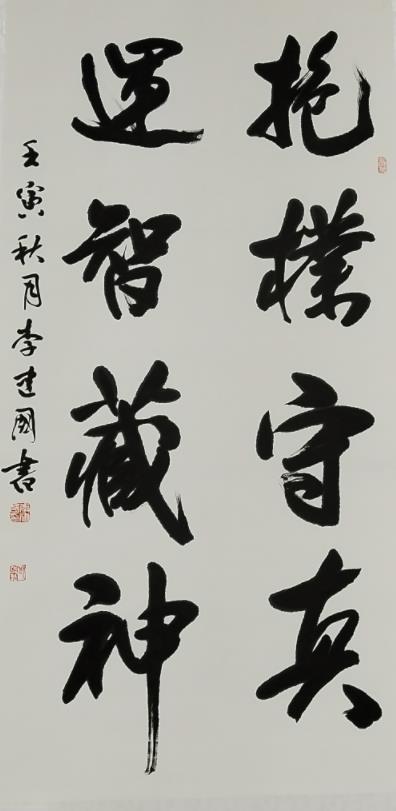 抱樸守真
運智藏神
壬寅秋月李建國書